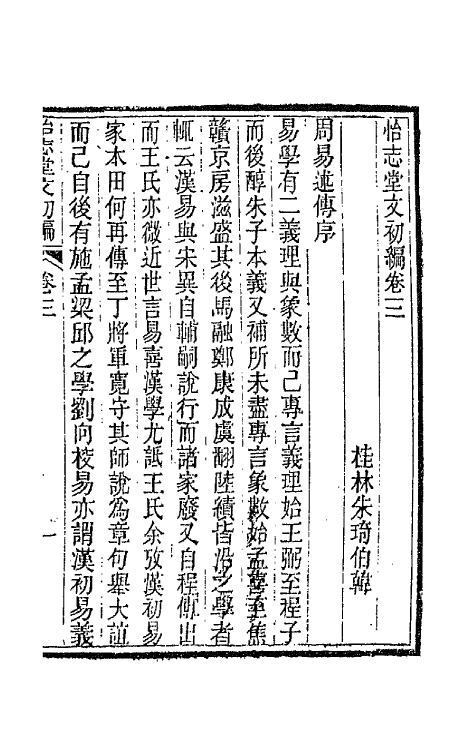 怡志堂文初編卷三
桂林朱琦伯韓
周易述傳序
易學有二義理與象數而已專言義理始王弼至程子
而後醇朱子本義又補所未盡專言象數始孟喜至焦
贛京房滋盛其後馬融鄭康成虞翻陸績皆沿之學者
輒云漢易與宋異自輔嗣說行而諸家廢又自程傳出
而王氏亦微近世言易喜漢學尤詆王氏余攷漢初易
家本田何再傳至丁將軍寬守其師說爲章句舉大誼
而已自後有施孟梁邱之學劉向校易亦謂漢初易義
怡志堂文初編 卷三 一